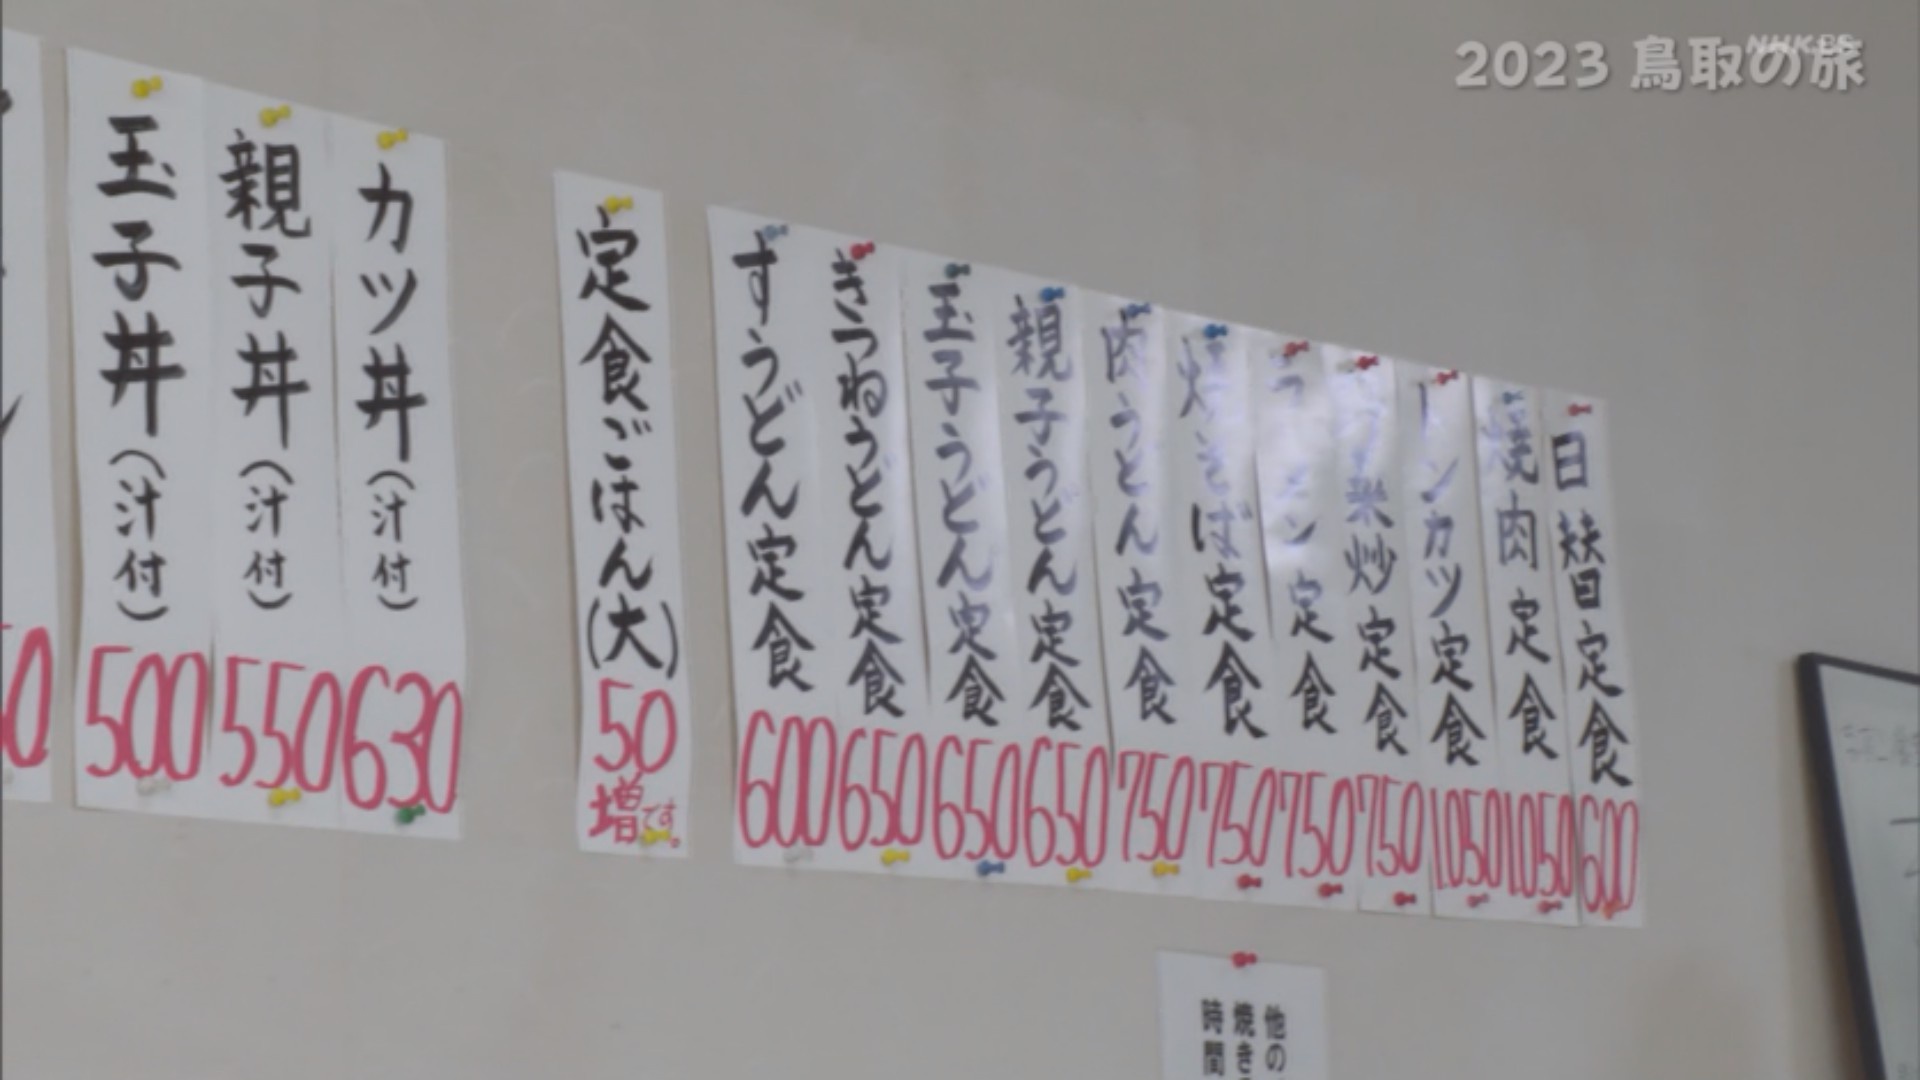 2023 鳥取の旅
NHK BS
日替定食 600
焼肉定食 1050
トンカツ定食 1050
野菜炒定食 750
ラーメン定食 750
焼そば定食 750
肉うどん定食 750
親子うどん定食 650
玉子うどん定食 650
きつねうどん定食 650
すうどん定食 600
定食ごはん(大) 50増です。
カツ丼(汁付) 630
親子丼(汁付) 550
玉子丼(汁付) 500
他の
焼き
時間